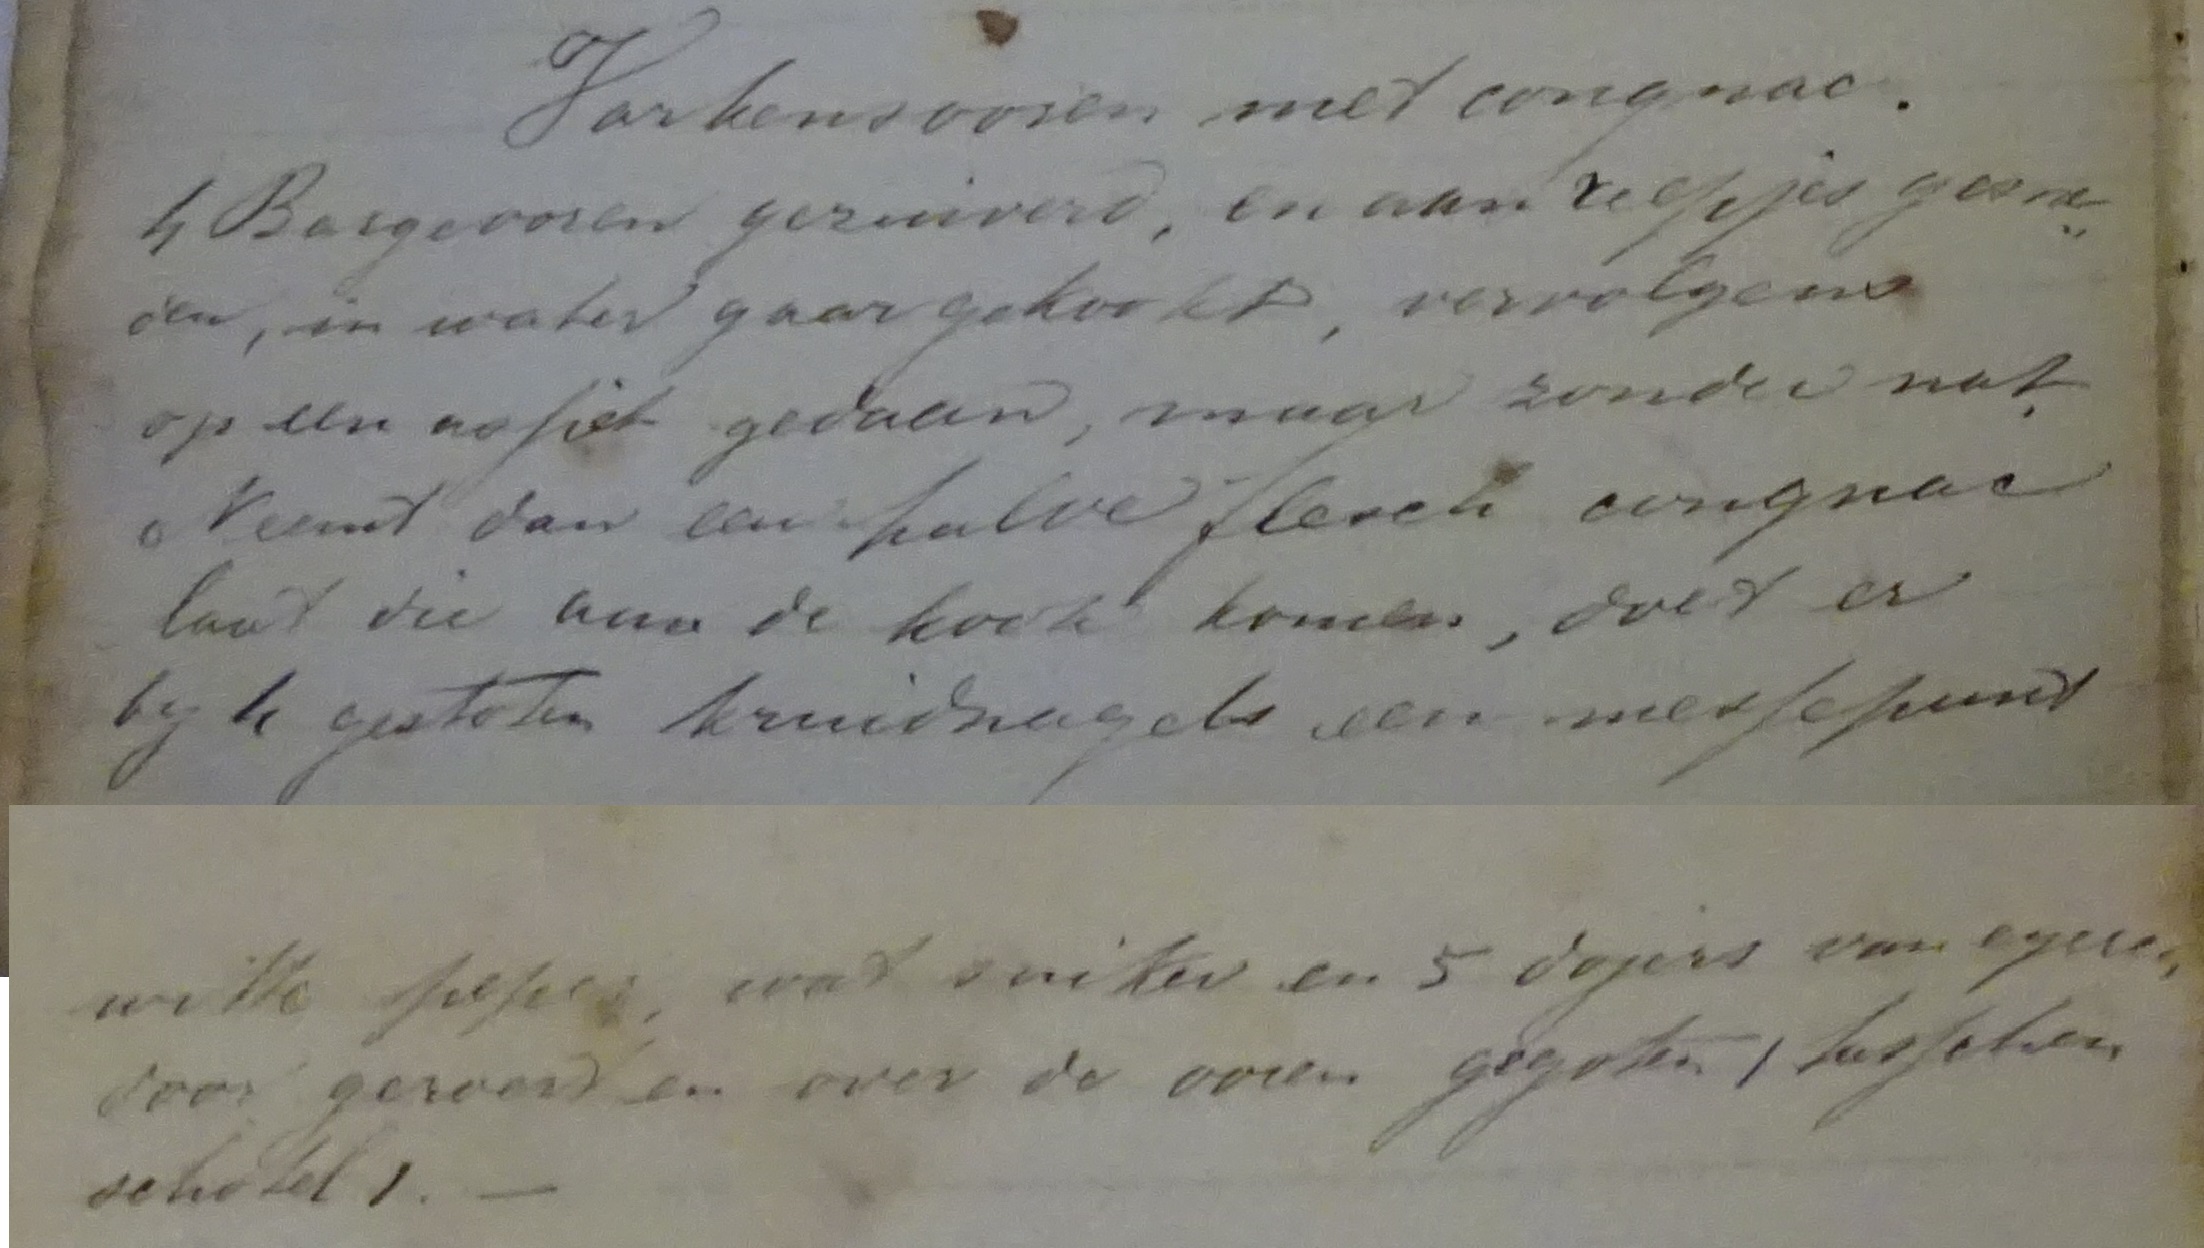 Varkensooren met congnac.
4 Bargeooren gezuiverd, en aan reepjes gesne„
den, in water gaar gekookt, vervolgens
op een assiet gedaan, maar zonder nat,
Neemt dan een halve flesch congnac
laat die aan de kook komen, doet er
by 4 gestoten kruidnagels een messepunt
witte peper, wat suiker en 5 dojers van eyeren,
door geroerd en over de ooren gegoten / tusschen
schotel /. —